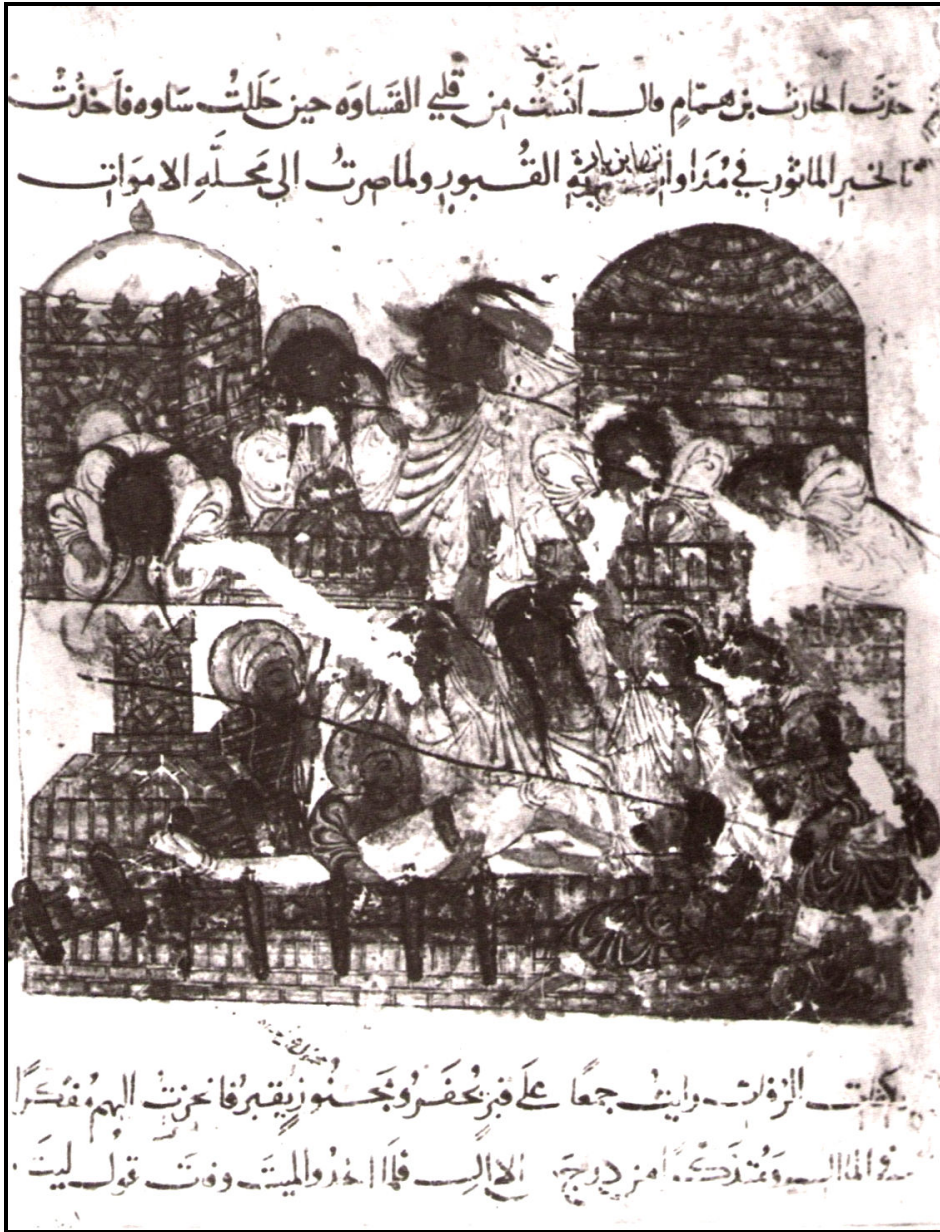 حدّث الحارث بن همّامٍ قال آنَسْتُ من قلبي القَسَاوَه حين حَلَلتُ سَاوه فأخذْتُ
بالخبر الماثور في مُدَاواتها بزيارة القُبور ولما صرتُ الى محلّه الاموات
الرفات رايتُ جمعًا على قبرٍ يُحفَر ومجنوزٍ يقبر فانحزتُ اليهم مُفكّرًا
في المآل ومُتذكّرًا من درجَ الال فلمّا الحدوا الميتَ وفاتَ قول ليتَ